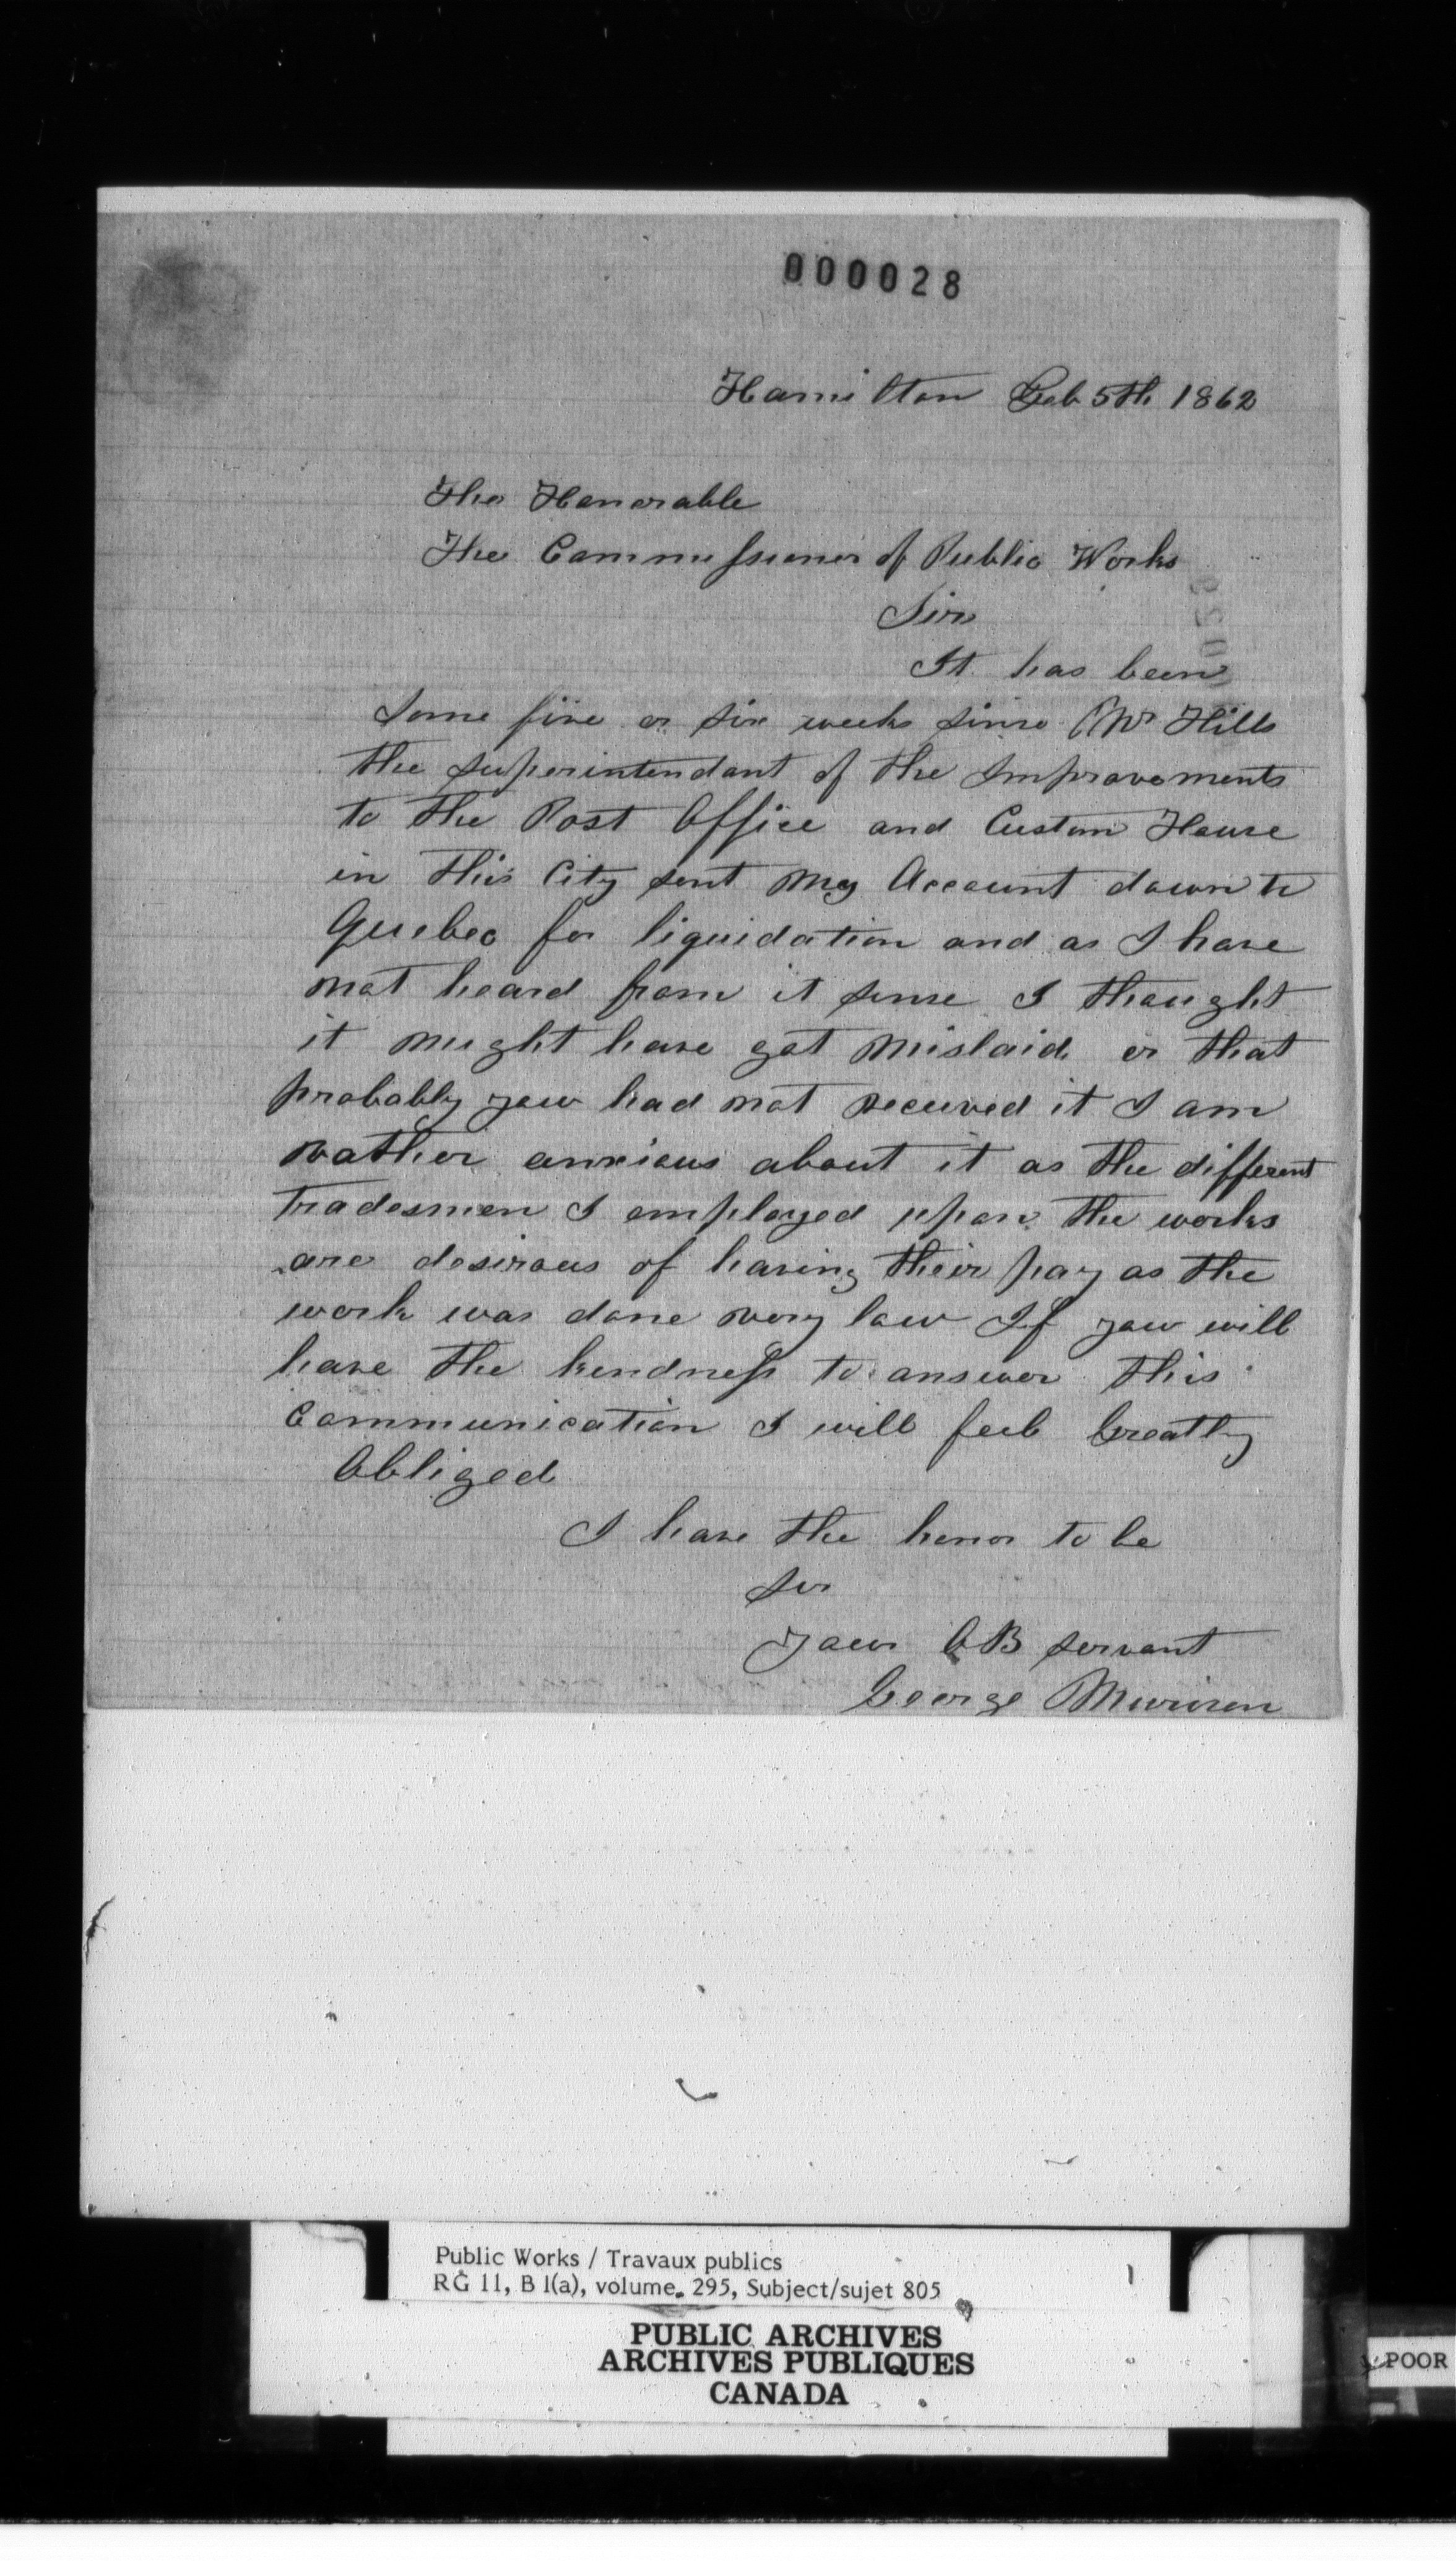 000028
Hamilton Feb 5th 1862
The Honorable
The Commissioner of Public Works
Sir
It has been
some five or six weeks since Mr Hills
the superintendant of the Improvements
to the Post Office and Custom House
in this City sent my Account down to
Quebec for liquidation and as I have
not heard from it since I thought
it might have got mislaid or that
probably you had not received it I am
rather anxious about it as the different
tradesmen I employed upon the works
are desirous of having their pay as the
work was done very low If you will
have the kindness to answer this
Communication I will feel Greatly
Obliged
I have the honor to be
Sir
Your OB servant
George
Public Works / Travaux publics
RG 11, B 1(a), volume. 295, Subject/sujet 805
PUBLIC ARCHIVES
ARCHIVES PUBLIQUES
CANADA
POOR